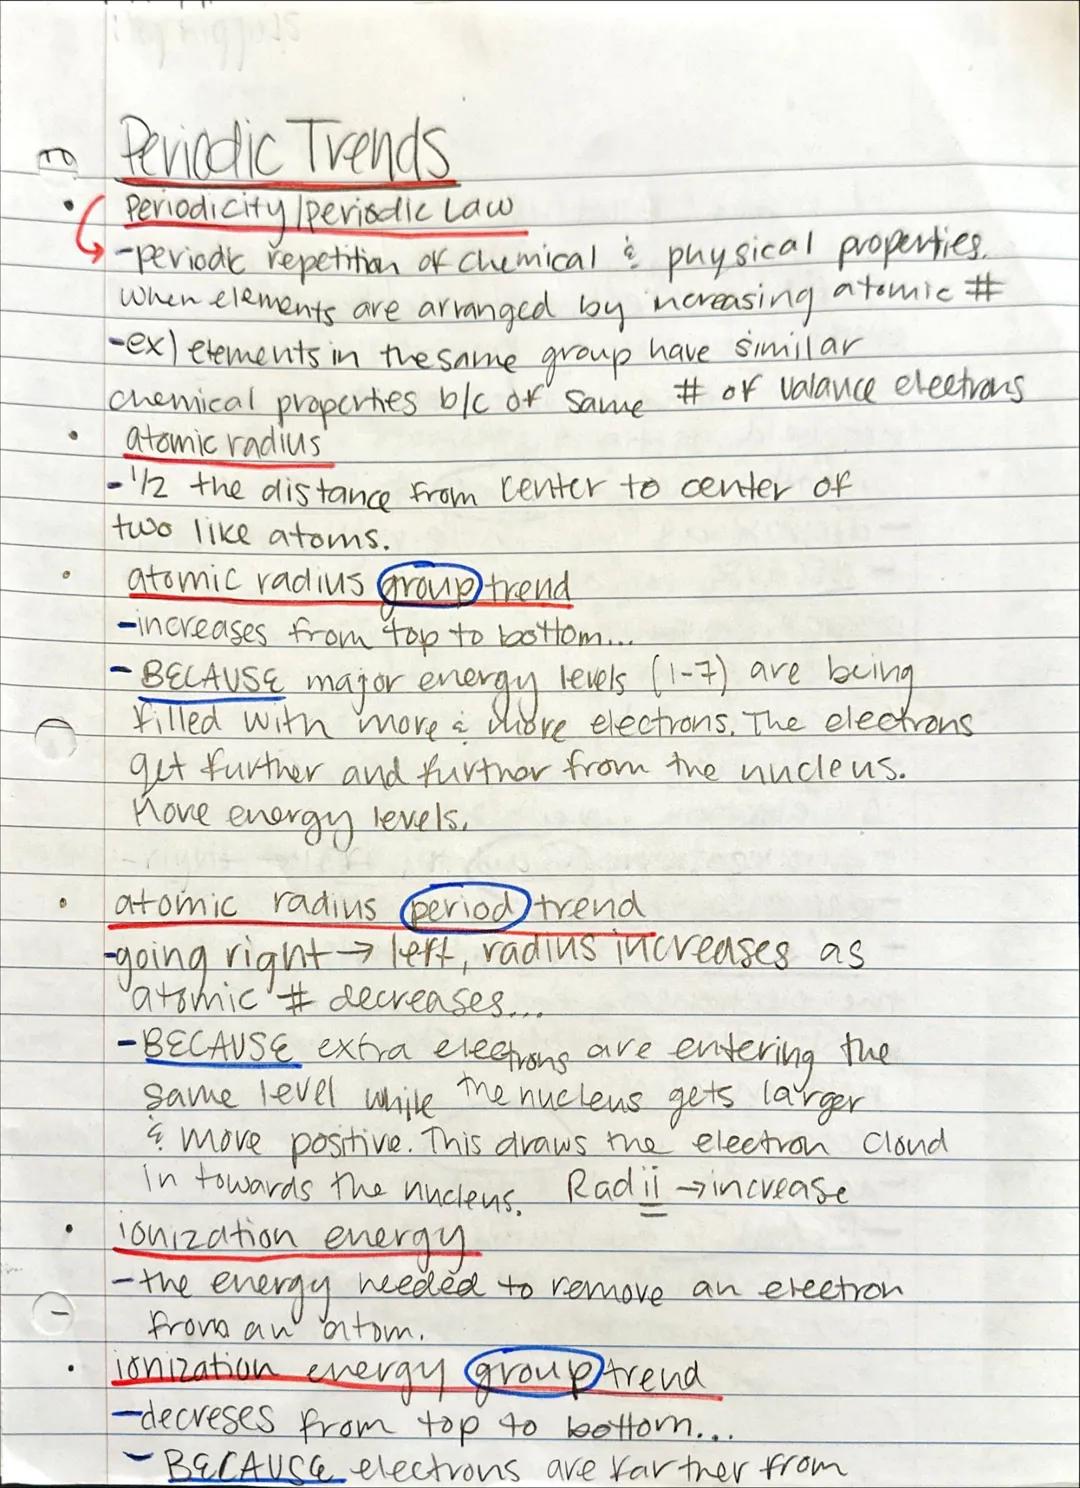 Periodic Trends
• Periodicity/periodic Law
-periodic repetition of chemical & physical properties.
When elements are arranged by increasing atomic #
-ex) elements in the same group have similar
chemical properties b/c of same # of valance electrons
• atomic radius
-1/2 the distance from center to center of
two like atoms.
• atomic radius group trend
-increases from top to bottom...
- BECAUSE major energy levels (1-7) are being
filled with more & more electrons. The electrons
get further and further from the nucleus.
More energy levels.
• atomic radius period trend
-going right → left, radius increases as
atomic # decreases...
-BECAUSE extra electrons are entering the
same level while the nucleus gets larger
& more positive. This draws the electron cloud
in towards the nucleus. Radii → increase
• ionization energy
-the energy needed to remove an electron
from an atom.
• ionization energy group trend
-decreses from top to bottom...
- BECAUSE electrons are farther from